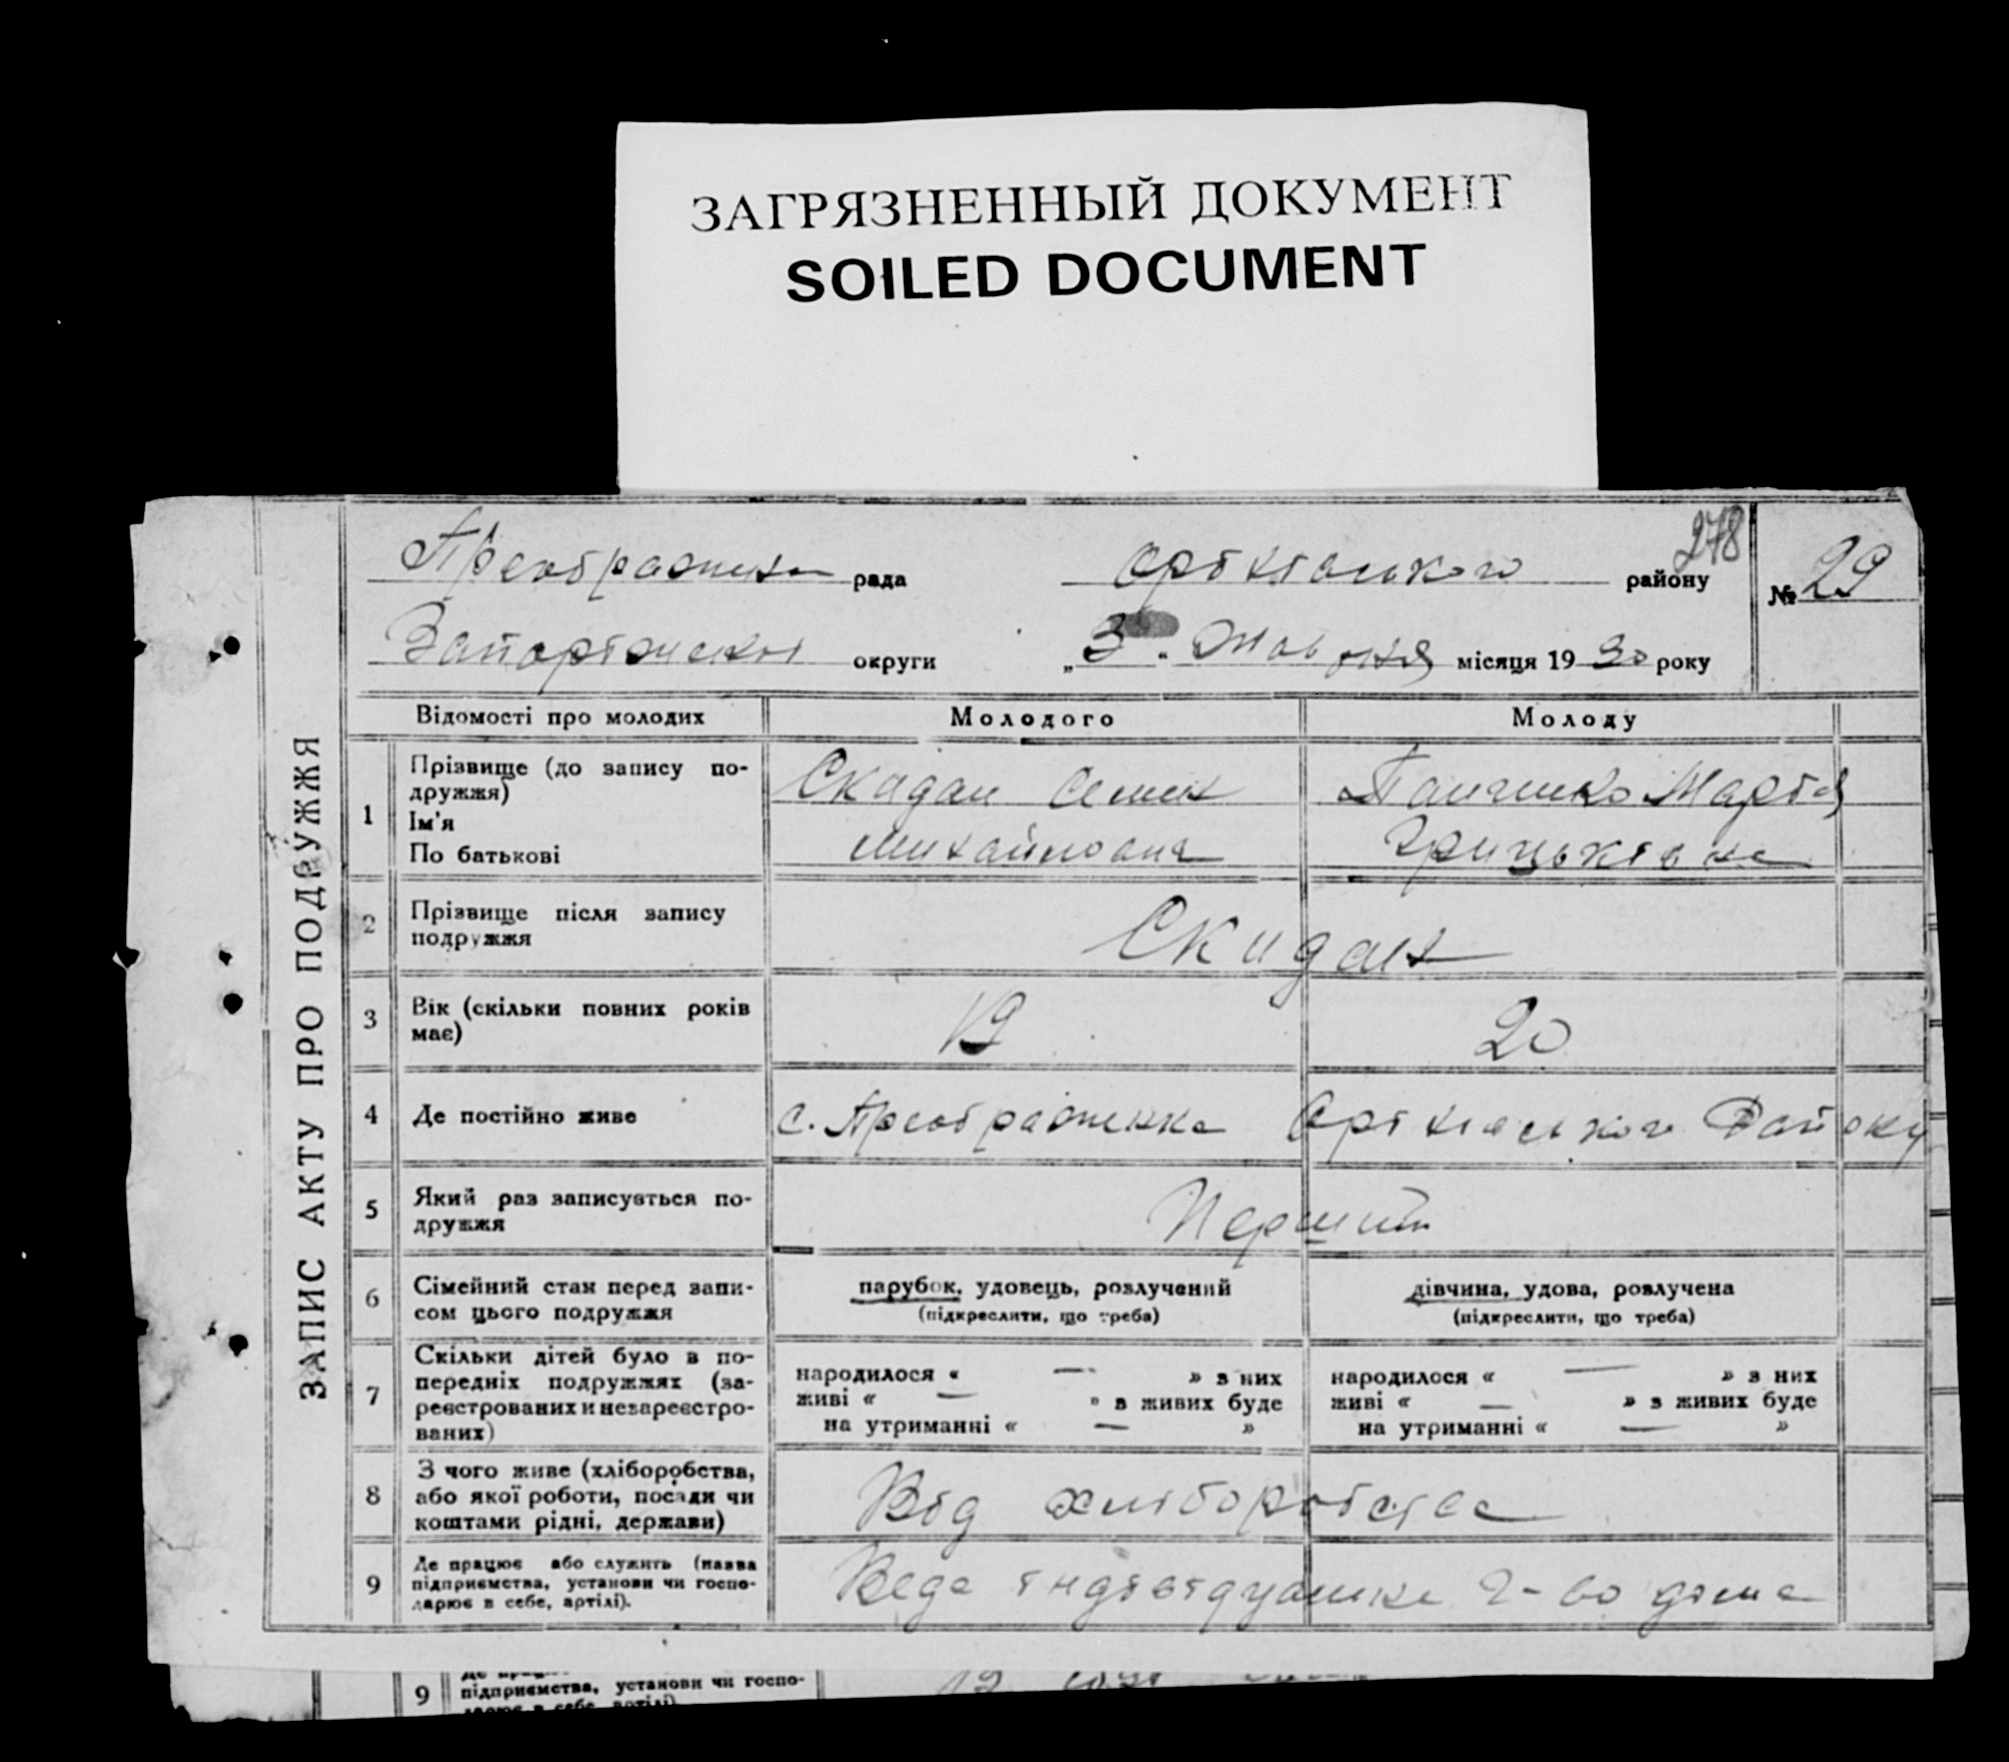 ЗАГРЯЗНЕННЫЙ ДОКУМЕНТ
SOILED DOCUMENT
278
Преображенка рада Оріхівського району № 29
Запоріжської округи „3“ Жовтня місяця 1930 року
ЗАПИС АКТУ ПРО ПОДРУЖЖЯ
Відомості про молодих Молодого Молоду
1 Прізвище (до запису по-
дружжя)
Ім'я
По батькові
Скидан Семен
Михайлович
Панченко Марія
Грицьківна
2 Прізвище після запису
подружжя
Скидан
3 Вік (скільки повних років
має)
19 20
4 Де постійно живе с. Преображенка Оріхівського Району
5 Який раз записується по-
дружжя
Перший
6 Сімейний стан перед запи-
сом цього подружжя
парубок, удовець, розлучений
(підкреслити, що треба)
дівчина, удова, розлучена
(підкреслити, що треба)
7 Скільки дітей було в по-
передніх подружжях (за-
реєстрованих и незареєстро-
ваних)
народилося « — » з них
живі « — » з живих буде
на утриманні « — »
народилося « — » з них
живі « — » з живих буде
на утриманні « — »
8 З чого живе (хліборобства,
або якої роботи, посади чи
коштами рідні, держави)
Від хліборобства
9 Де працює або служить (назва
підприємства, установи чи госпо-
дарює в себе, артілі).
Веде індівідуальне г-во дома
9 підприємства, установи чи госпо-
дарює в себе, артілі)